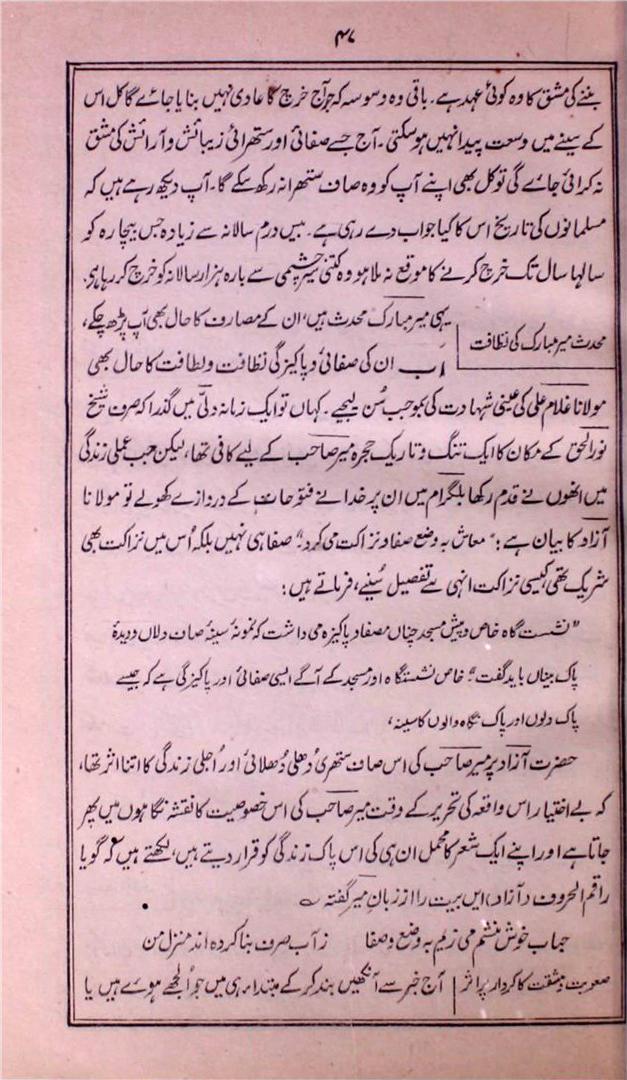 ۴۷
بننے کی مشق کا وہ کوئی عہد ہے۔ باقی وہ وسوسہ کہ جو آج خرچ کا عادی نہیں بنایا جائے گا کل اس
کے سینے میں وسعت پیدا نہیں ہو سکتی۔ آج جسے صفائی اور ستھرائی زیبائش و آرائش کی مشق
نہ کرائی جائے گی تو کل بھی اپنے آپ کو وہ صاف ستھرا نہ رکھ سکے گا۔ آپ دیکھ رہے ہیں کہ
مسلمانوں کی تاریخ اس کا کیا جواب دے رہی ہے۔ بیس درم سالانہ سے زیادہ جس بیچارہ کو
سالہا سال تک خرچ کرنے کا موقع نہ ملا ہو وہ کتنی سیر چشمی سے بارہ ہزار سالانہ کو خرچ کر رہا ہی۔
محدث میر مبارک کی نظافت
یہی میر مبارک محدث ہیں، ان کے مصارف کا حال بھی آپ پڑھ چکے،
اب ان کی صفائی و پاکیزگی نظافت و لطافت کا حال بھی
مولانا غلام علی کی عینی شہادت کی بموجب سُن لیجیے۔ کہاں تو ایک زمانہ دلّی میں گذرا کہ صرف شیخ
نور الحق کے مکان کا ایک تنگ و تاریک حجرہ میر صاحب کے لیے کافی تھا، لیکن جب عملی زندگی
میں انھوں نے قدم رکھا بلگرام میں ان پر خدا نے فتوحات کے دروازے کھولے تو مولانا
آزاد کا بیان ہے: "معاش بہ وضع صفا و نزاکت می کرد" صفا ہی نہیں بلکہ اُس میں نزاکت بھی
شریک تھی، کیسی نزاکت انہی سے تفصیل سُنیے، فرماتے ہیں:
"نشست گاہ خاص و پیش مسجد چناں مصفا و پاکیزہ می داشت کہ نمونۂ سینۂ صاف دلاں و دیدۂ
پاک بیناں باید گفت" خاص نشستگاہ اور مسجد کے آگے ایسی صفائی اور پاکیزگی ہے کہ جیسے
پاک دلوں اور پاک نگاہ والوں کا سینہ،
حضرت آزاد پر میر صاحب کی اس صاف ستھری دُھلی دُھلائی اور اُجلی زندگی کا اتنا اثر تھا،
کہ بے اختیار اس واقعہ کی تحریر کے وقت میر صاحب کی اس خصوصیت کا نقشہ نگاہوں میں پھر
جاتا ہے اور اپنے ایک شعر کا محمل ان ہی کی اس پاک زندگی کو قرار دیتے ہیں، لکھتے ہیں کہ گویا
راقم الحروف (آزاد) ایں بیت را از زبانِ میر گفتہ ؎
حباب خوش منشم می زیم بہ وضع و صفا ز آب صرف بنا کردہ اند منزل من
صعوبت و مشقت کا کردار پر اثر
آج خبر سے آنکھیں بند کر کے مبتدا ہی میں جو اُلجھے ہوے ہیں یا